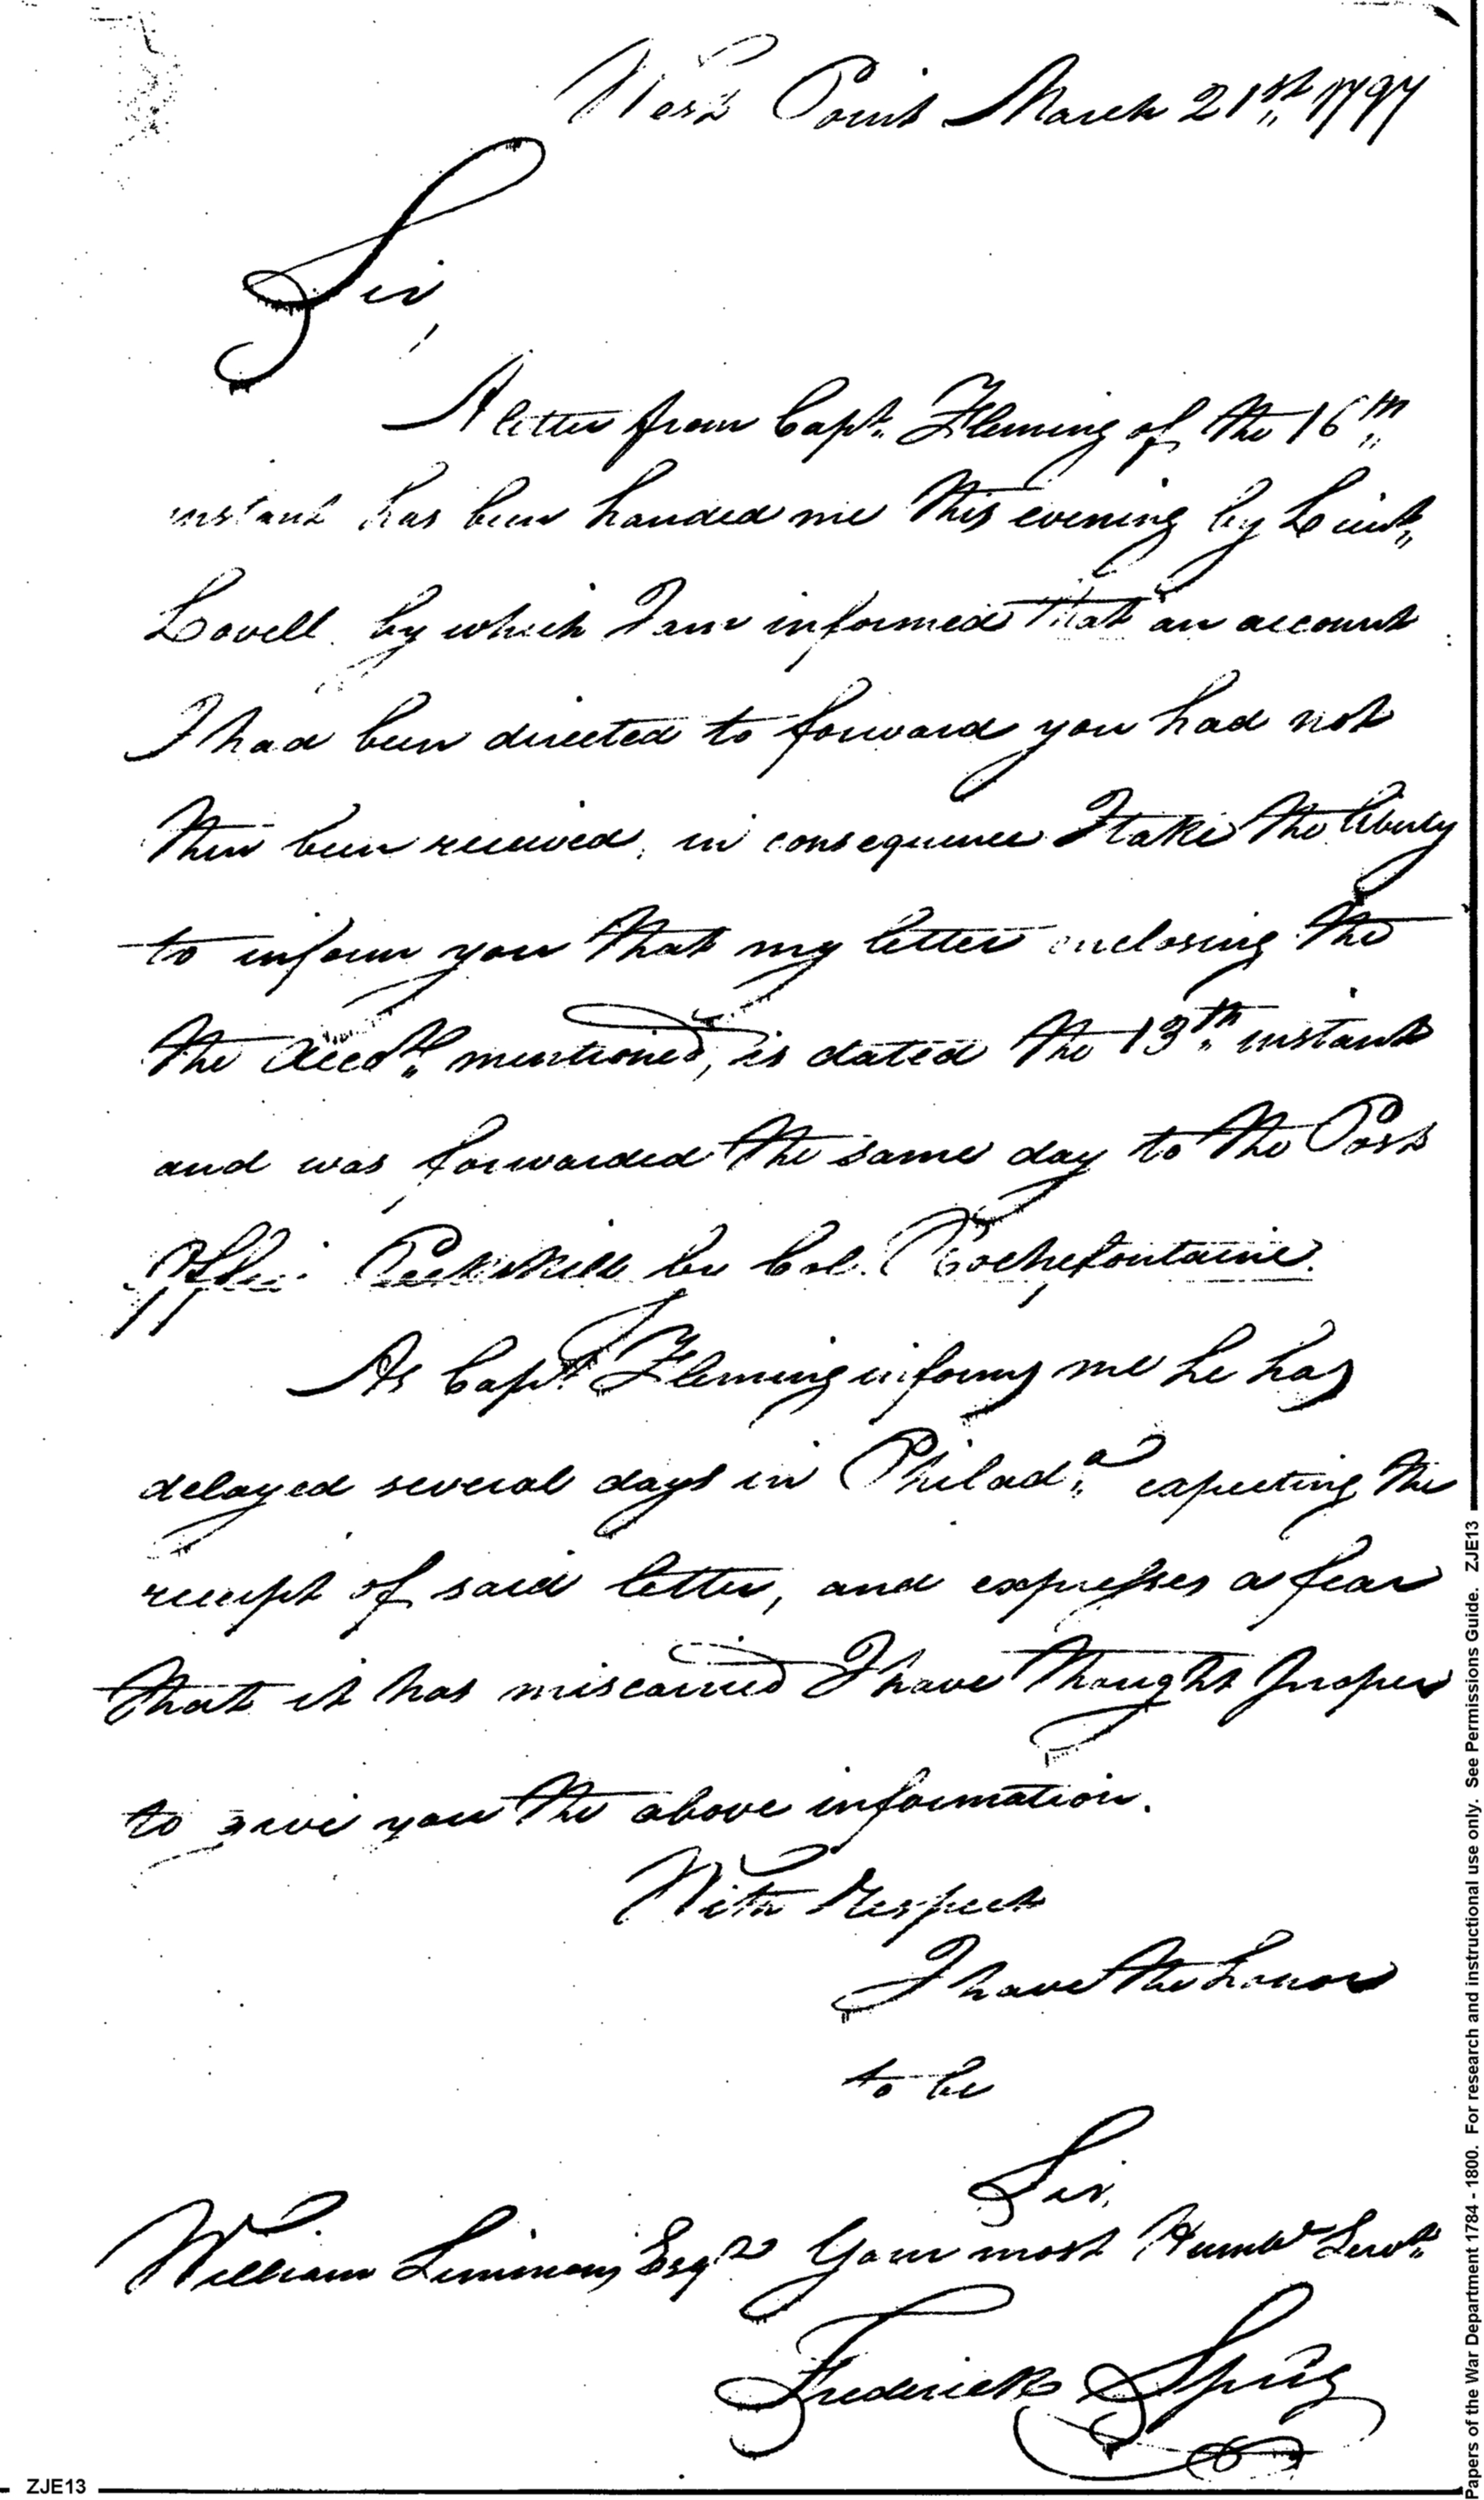 West Point March 21st 1797
Sir,
A letter from Capt. Fleming of the 16th
instant has been handed me this evening by Lieut.
Lovell. by which I am informed that an account
I had been directed to forward you had not
then been received, in consequence I take the liberty
to inform you that my letter enclosing the
the Acct. mentioned, is dated the 13th instant
and was forwarded the same day to the Post
Office Peekskill by Col. Rochefontaine.
As Capt. Fleming informs me he has
delayed several days in Philad.a expecting the
receipt of said letter, and expresses a fear
that it has miscarried I have thought proper
to give you the above information.
With Respect
I have the honor
to be
Sir,
William Simmons Esqr Your most Humbe Servt.
Frederick
ZJE13
Papers of the War Department 1784 - 1800. For research and instructional use only. See Permissions Guide. ZJE13